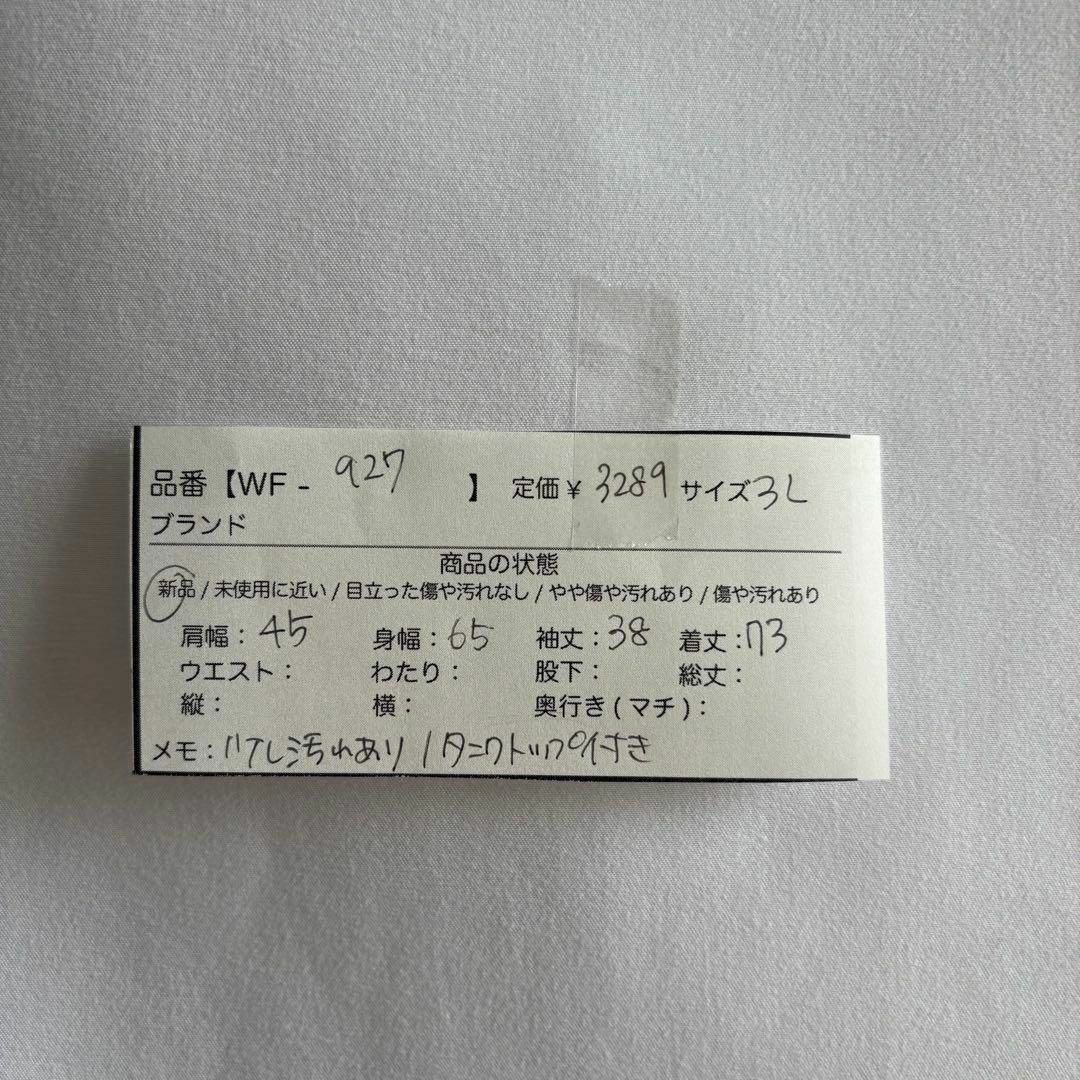 品番【WF - 927 】 定価 ¥ 3289 サイズ 3L
ブランド
商品の状態
新品 / 未使用に近い / 目立った傷や汚れなし / やや傷や汚れあり / 傷や汚れあり
肩幅：45 身幅：65 袖丈：38 着丈：73
ウエスト： わたり： 股下： 総丈：
縦： 横： 奥行き ( マチ )：
メモ： 汚れあり / タンクトップ付き